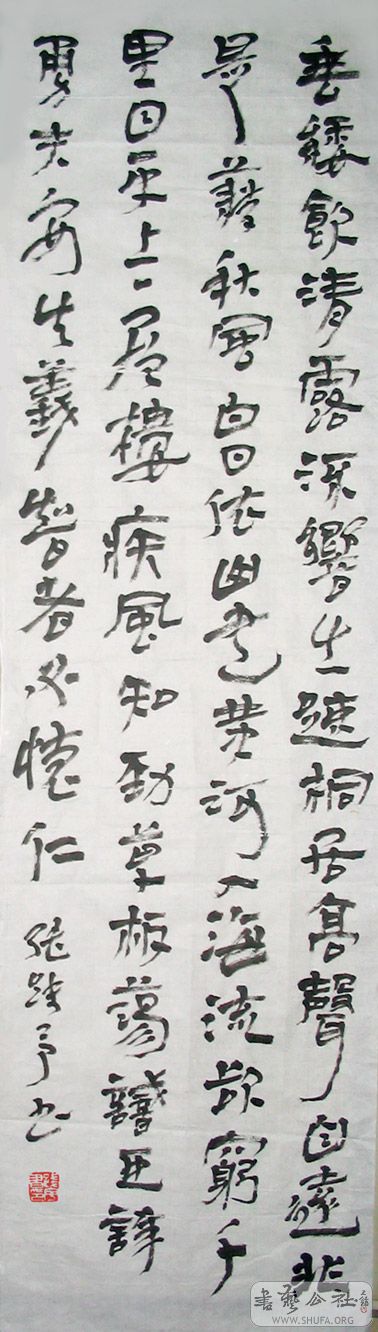 垂緌飲清露流響出疏桐居高聲自遠非
是藉秋風白日依山盡黄河入海流欲窮千
里目更上一層樓疾風知勁草板蕩識臣
勇夫安義智者必懷仁
張書
書藝公社
WWW.SHUFA.ORG